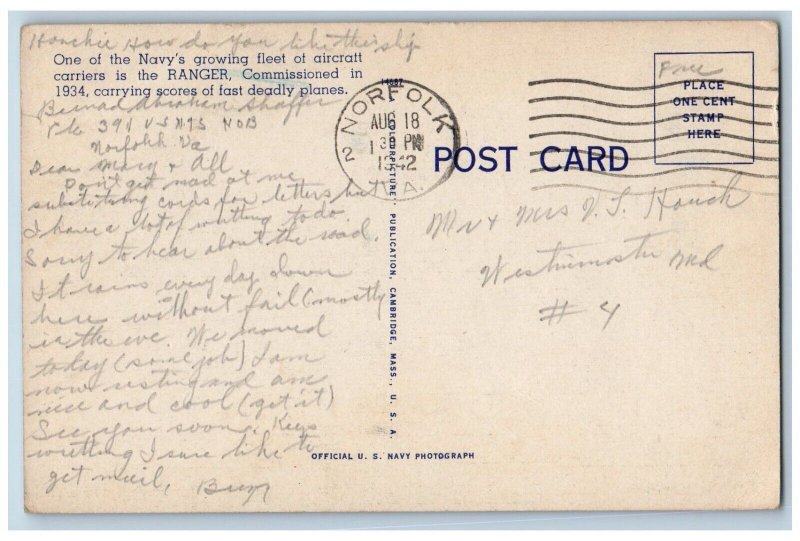 Houchie How do you like this ship
One of the Navy's growing fleet of aircraft
carriers is the RANGER, Commissioned in
1934, carrying scores of fast deadly planes.
Bernard Abraham Shaffer
Plt 391 USNTS NOB
Norfolk Va
Dear Mary & All
Don't get mad at me
substituting cards for letters but
I have a lot of writting to do.
Sorry to hear about the road.
It rains every day down
here without fail (mostly
in the eve. We moved
today (some job) I am
now resting and am
nice and cool (get it)
See you soon. Keep
writting I sure like to
get mail,
14687
"COLORPICTURE" PUBLICATION, CAMBRIDGE, MASS., U. S. A.
OFFICIAL U. S. NAVY PHOTOGRAPH
NORFOLK
2
AUG 18
1 30 PM
1942
VA.
POST CARD
Free
PLACE
ONE CENT
STAMP
HERE
Mr & Mrs N. S. Houch
Westminster Md
# 4